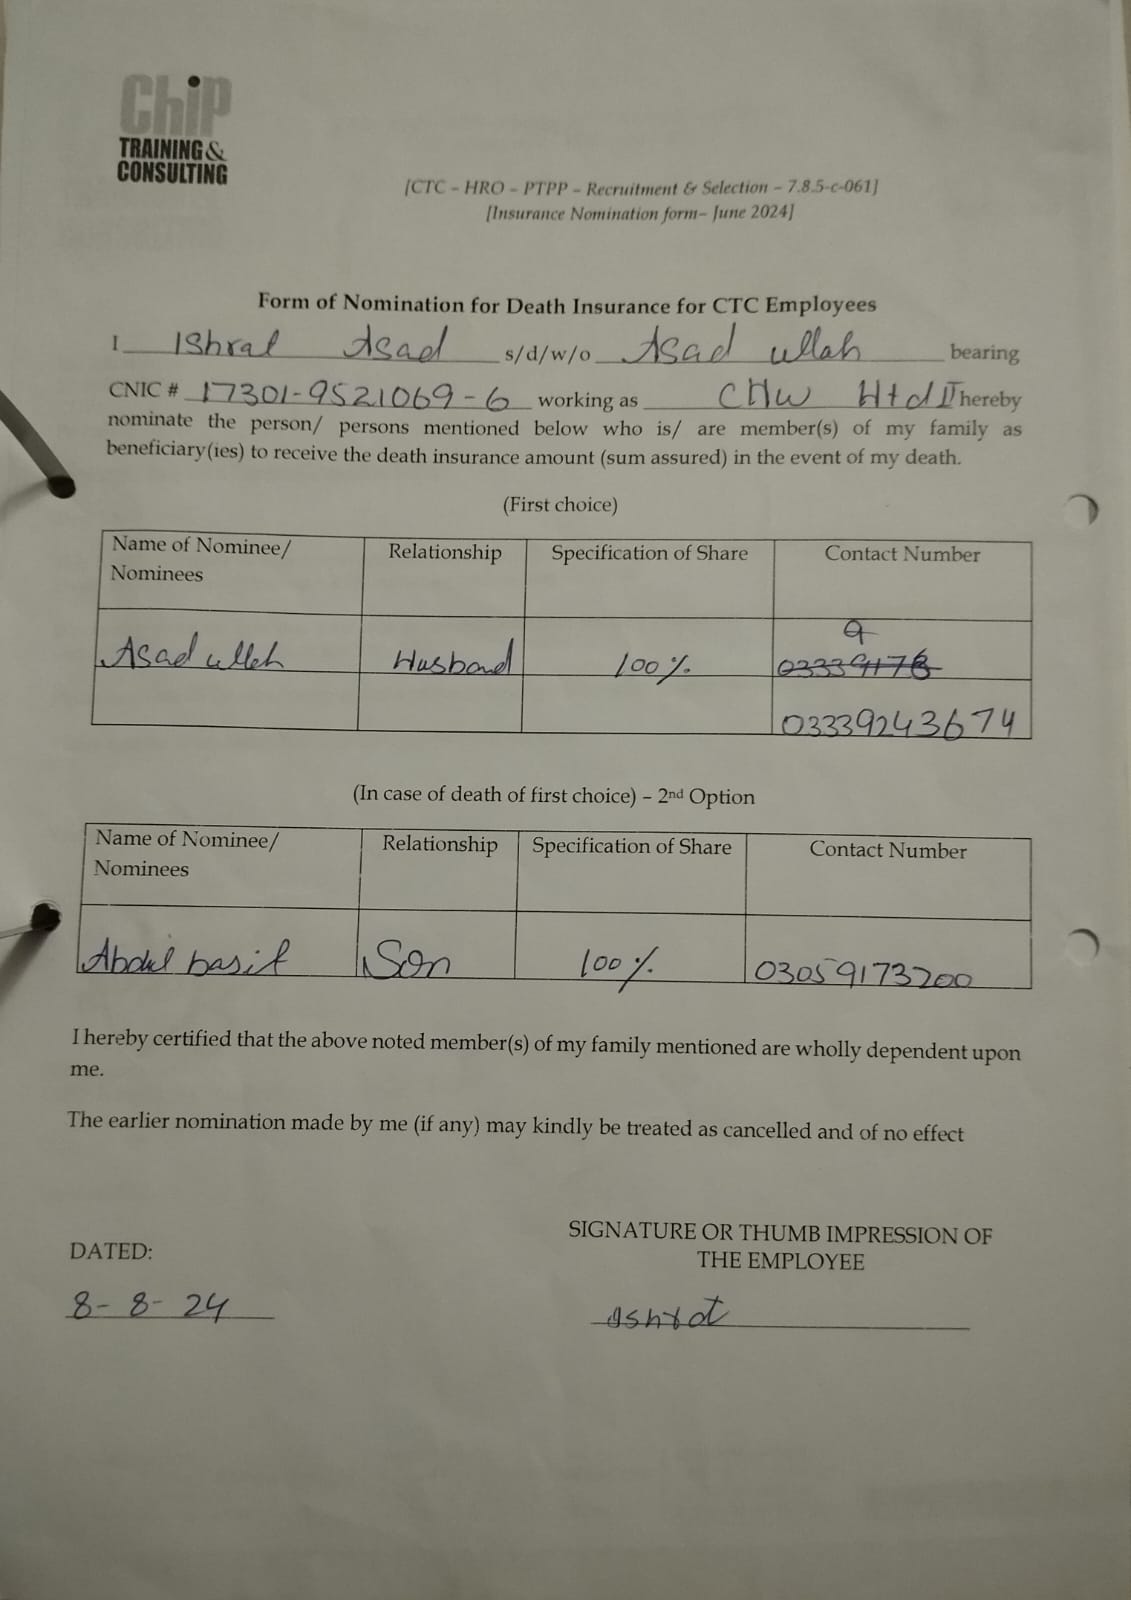 Chip
TRAINING &
CONSULTING
[CTC – HRO – PTPP – Recruitment & Selection – 7.8.5-c-061]
[Insurance Nomination form– June 2024]
Form of Nomination for Death Insurance for CTC Employees
I Ishrat Asad s/d/w/o Asad ullah bearing
CNIC # 17301-9521069-6 working as CHW Htd II hereby
nominate the person/ persons mentioned below who is/ are member(s) of my family as
beneficiary(ies) to receive the death insurance amount (sum assured) in the event of my death.
(First choice)
Name of Nominee/ Relationship Specification of Share Contact Number
Nominees
9
Asad ullah Husband 100%
03339243674
(In case of death of first choice) – 2nd Option
Name of Nominee/ Relationship Specification of Share Contact Number
Nominees
Abdul basit Son 100% 03059173200
I hereby certified that the above noted member(s) of my family mentioned are wholly dependent upon
me.
The earlier nomination made by me (if any) may kindly be treated as cancelled and of no effect
SIGNATURE OR THUMB IMPRESSION OF
DATED: THE EMPLOYEE
8-8-24 ishrat